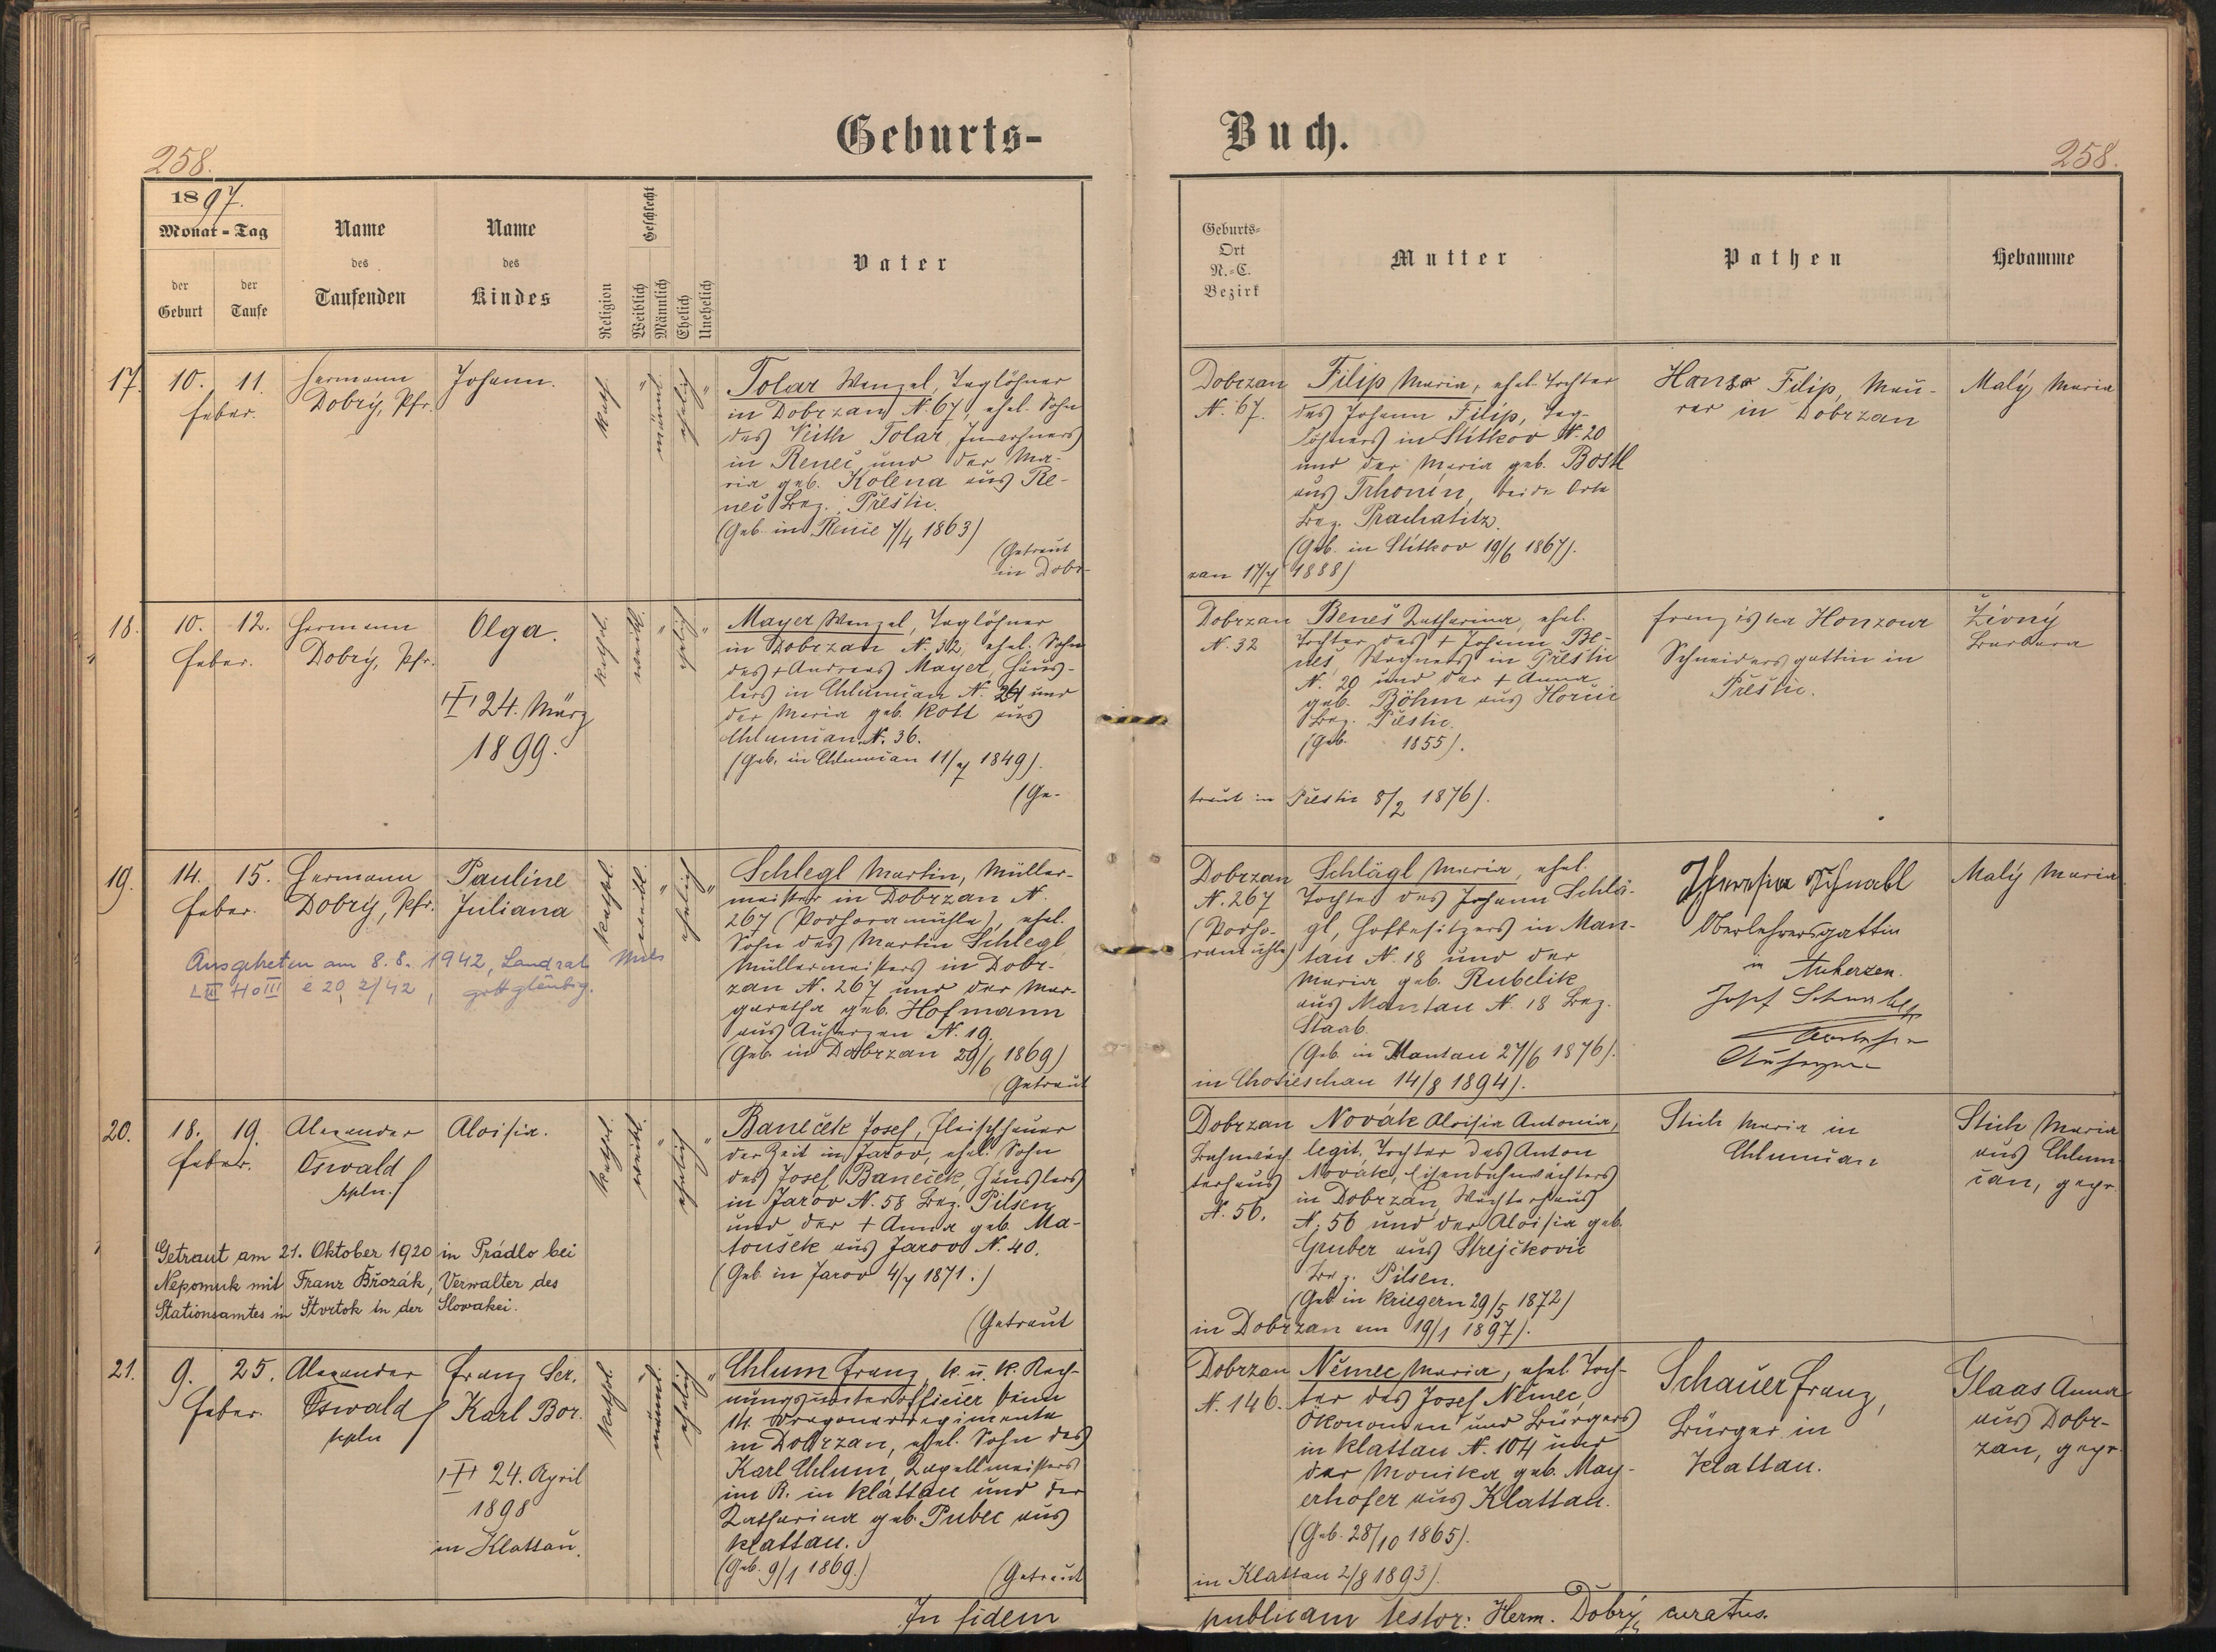 Geburts-
Buch.
258.
258.
1897.
Monat - Tag
der Geburt
der Taufe
Name des Taufenden
Name des Kindes
Religion
Geschlecht
Weiblich
Männlich
Ehelich
Unehelich
Vater
Geburts-Ort N.-C. Bezirk
Mutter
Pathen
Hebamme
17.
10. 11.
Feber.
Hermann
Dobrý, Pfr.
Johann.
kath.
"
männl.
ehelich
"
Tolar Wenzel, Taglöhner
in Dobrzan N. 67, ehel. Sohn
des Veith Tolar, Inwohners
in Reneč und der Ma-
ria geb. Kolena aus Re-
neč Bez. Přestic.
(Geb. in Renče 7/4 1863)
(Getraut
in Dobr-
Dobrzan
N. 67.
Filip Maria, ehel. Tochter
des Johann Filip, Tag-
löhners in Stítkov N. 20
und der Maria geb. Bostl
aus Trhonín, beide Orte
Bez. Prachatitz.
(Geb. in Stítkov 19/6 1867).
zan 17/7 1888)
Filip, Mau-
rer in Dobrzan
Malý Maria
18.
10. 12.
Feber.
Hermann
Dobrý, Pfr.
Olga.
24. März
1899.
kathol.
weibl.
"
ehelich
"
Mayer Wenzel, Taglöhner
in Dobrzan N. 32, ehel. Sohn
des + Andreas Mayer, Häus-
lers in Chlumčan N. 24 und
der Maria geb. Kott aus
Chlumčan N. 36.
(Geb. in Chlumčan 11/7 1849).
(Ge-
Dobrzan
N. 32
Beneš Katharina, ehel.
Tochter des + Johann Be-
neš, Wagners in Přestic
N. 20 und der + Anna
geb. Böhm aus Horšic
Bez. Přestic.
(Geb. 1855).
traut in Přestic 8/2 1876).
Franziska Honzour
Schneidersgattin in
Přestic.
Živný
Barbara
19.
14. 15.
Feber.
Hermann
Dobrý, Pfr.
Pauline
Juliana
Ausgetreten am 8.8.1942, Landrat Mies
č 20, 2/42, gottgläubig.
kathol.
weibl.
"
ehelich
"
Schlegl Martin, Müller-
meister in Dobrzan N.
267 (Podhoramühle), ehel.
Sohn des Martin Schlegl
Müllermeisters in Dobr-
zan N. 267 und der Mar-
garetha geb. Hofmann
aus Auherzen N. 19.
(Geb. in Dobrzan 29/6 1869)
(Getraut
Dobrzan
N. 267
(Podho-
ramühle)
Schlägl Maria, ehel.
Tochter des Johann Schlä-
gl, Hofbesitzers in Man-
tau N. 18 und der
Maria geb. Kubelik
aus Mantau N. 18 Bez.
Staab.
(Geb. in Mantau 27/6 1876).
in Chotieschau 14/8 1894).
Theresia Schnabl
Oberlehrersgattin
in Auherzen.
Josef Schnabl
Oberlehrer
Auherzen
Malý Maria
20.
18. 19.
Feber.
Alexander
Oswald
kpln.
Aloisia.
Getraut am 21. Oktober 1920 in Prádlo bei
Nepomuk mit Franz Břozák, Verwalter des
Stationsamtes in Štvrtok in der Slowakei.
kathol.
weibl.
"
ehelich
"
Baneček Josef, Fleischhauer
der Zeit in Jarov, ehel. Sohn
des Josef Baneček, Häuslers
in Jarov N. 58 Bez. Pilsen
und der + Anna geb. Ma-
toušek aus Jarov N. 40.
(Geb. in Jarov 4/7 1871.)
(Getraut
Dobrzan
Bahnwäch-
terhaus
N. 56.
Novák Aloisia Antonia,
legit. Tochter des Anton
Novák, Eisenbahnwächters
in Dobrzan, Wächterhaus
N. 56 und der Aloisia geb.
Gruber aus Strejčkovic
Bez. Pilsen.
(Geb. in Kriegern 29/5 1872)
in Dobrzan am 19/1 1897).
Stich Maria in
Chlumčan
Stich Maria
aus Chlum-
čan, gepr.
21.
9. 25.
Feber.
Alexander
Oswald
kpln
Franz Ser.
Karl Bor.
24. April
1898
in Klattau.
kathol.
"
männl.
ehelich
"
Chlum Franz, k. u. k. Rech-
nungsunterofficier beim
14. Dragonerregimente
in Dobrzan, ehel. Sohn des
Karl Chlum, Kapellmeisters
im R. in Klattau und der
Katharina geb. Pubec aus
Klattau.
(Geb. 9/1 1869.)
(Getraut
Dobrzan
N. 146.
Němec Maria, ehel. Toch-
ter des Josef Němec,
Ökonomen und Bürgers
in Klattau N. 104 und
der Monika geb. May-
erhofer aus Klattau.
(Geb. 28/10 1865).
in Klattau 2/8 1893).
Schauer Franz,
Bürger in
Klattau.
Glaas Anna
aus Dobr-
zan, gepr.
In fidem
publicam testor: Herm. Dobrý, curatus.